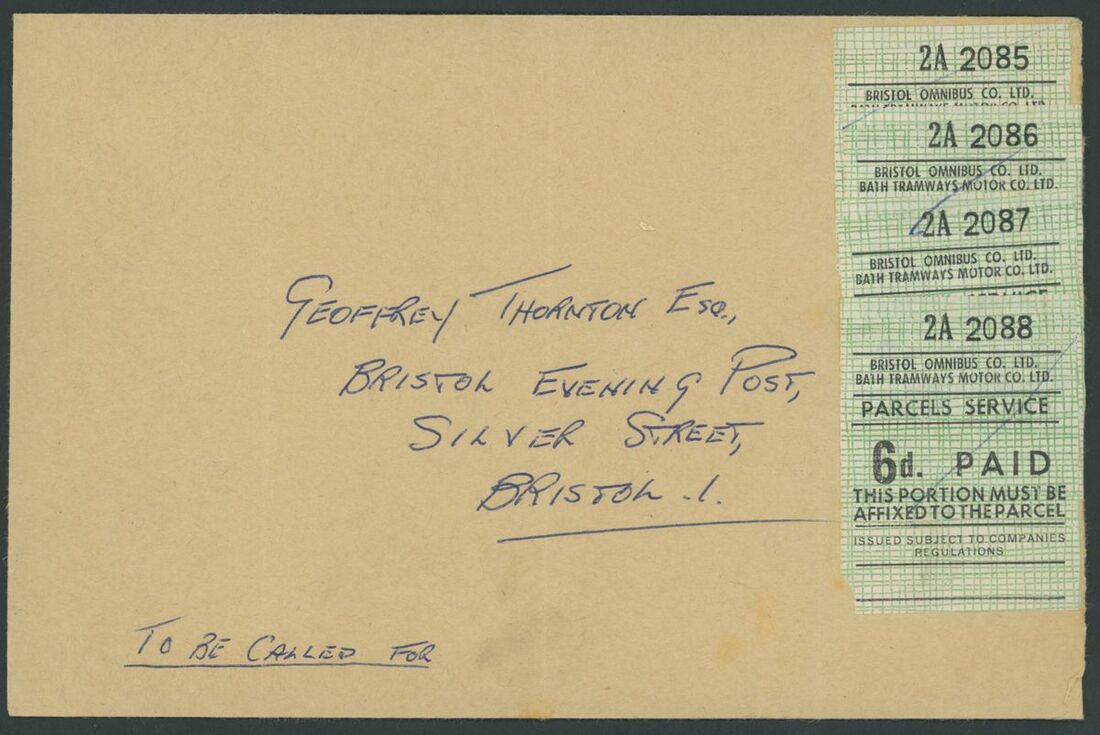 2A 2085
BRISTOL OMNIBUS CO. LTD.
BATH TRAMWAYS MOTOR CO. LTD.
2A 2086
BRISTOL OMNIBUS CO. LTD.
BATH TRAMWAYS MOTOR CO. LTD.
2A 2087
BRISTOL OMNIBUS CO. LTD.
BATH TRAMWAYS MOTOR CO. LTD.
2A 2088
BRISTOL OMNIBUS CO. LTD.
BATH TRAMWAYS MOTOR CO. LTD.
PARCELS SERVICE
6d. PAID
THIS PORTION MUST BE
AFFIXED TO THE PARCEL
ISSUED SUBJECT TO COMPANIES
REGULATIONS
GEOFFREY THORNTON ESQ.,
BRISTOL EVENING POST,
SILVER STREET,
BRISTOL .1.
TO BE CALLED FOR